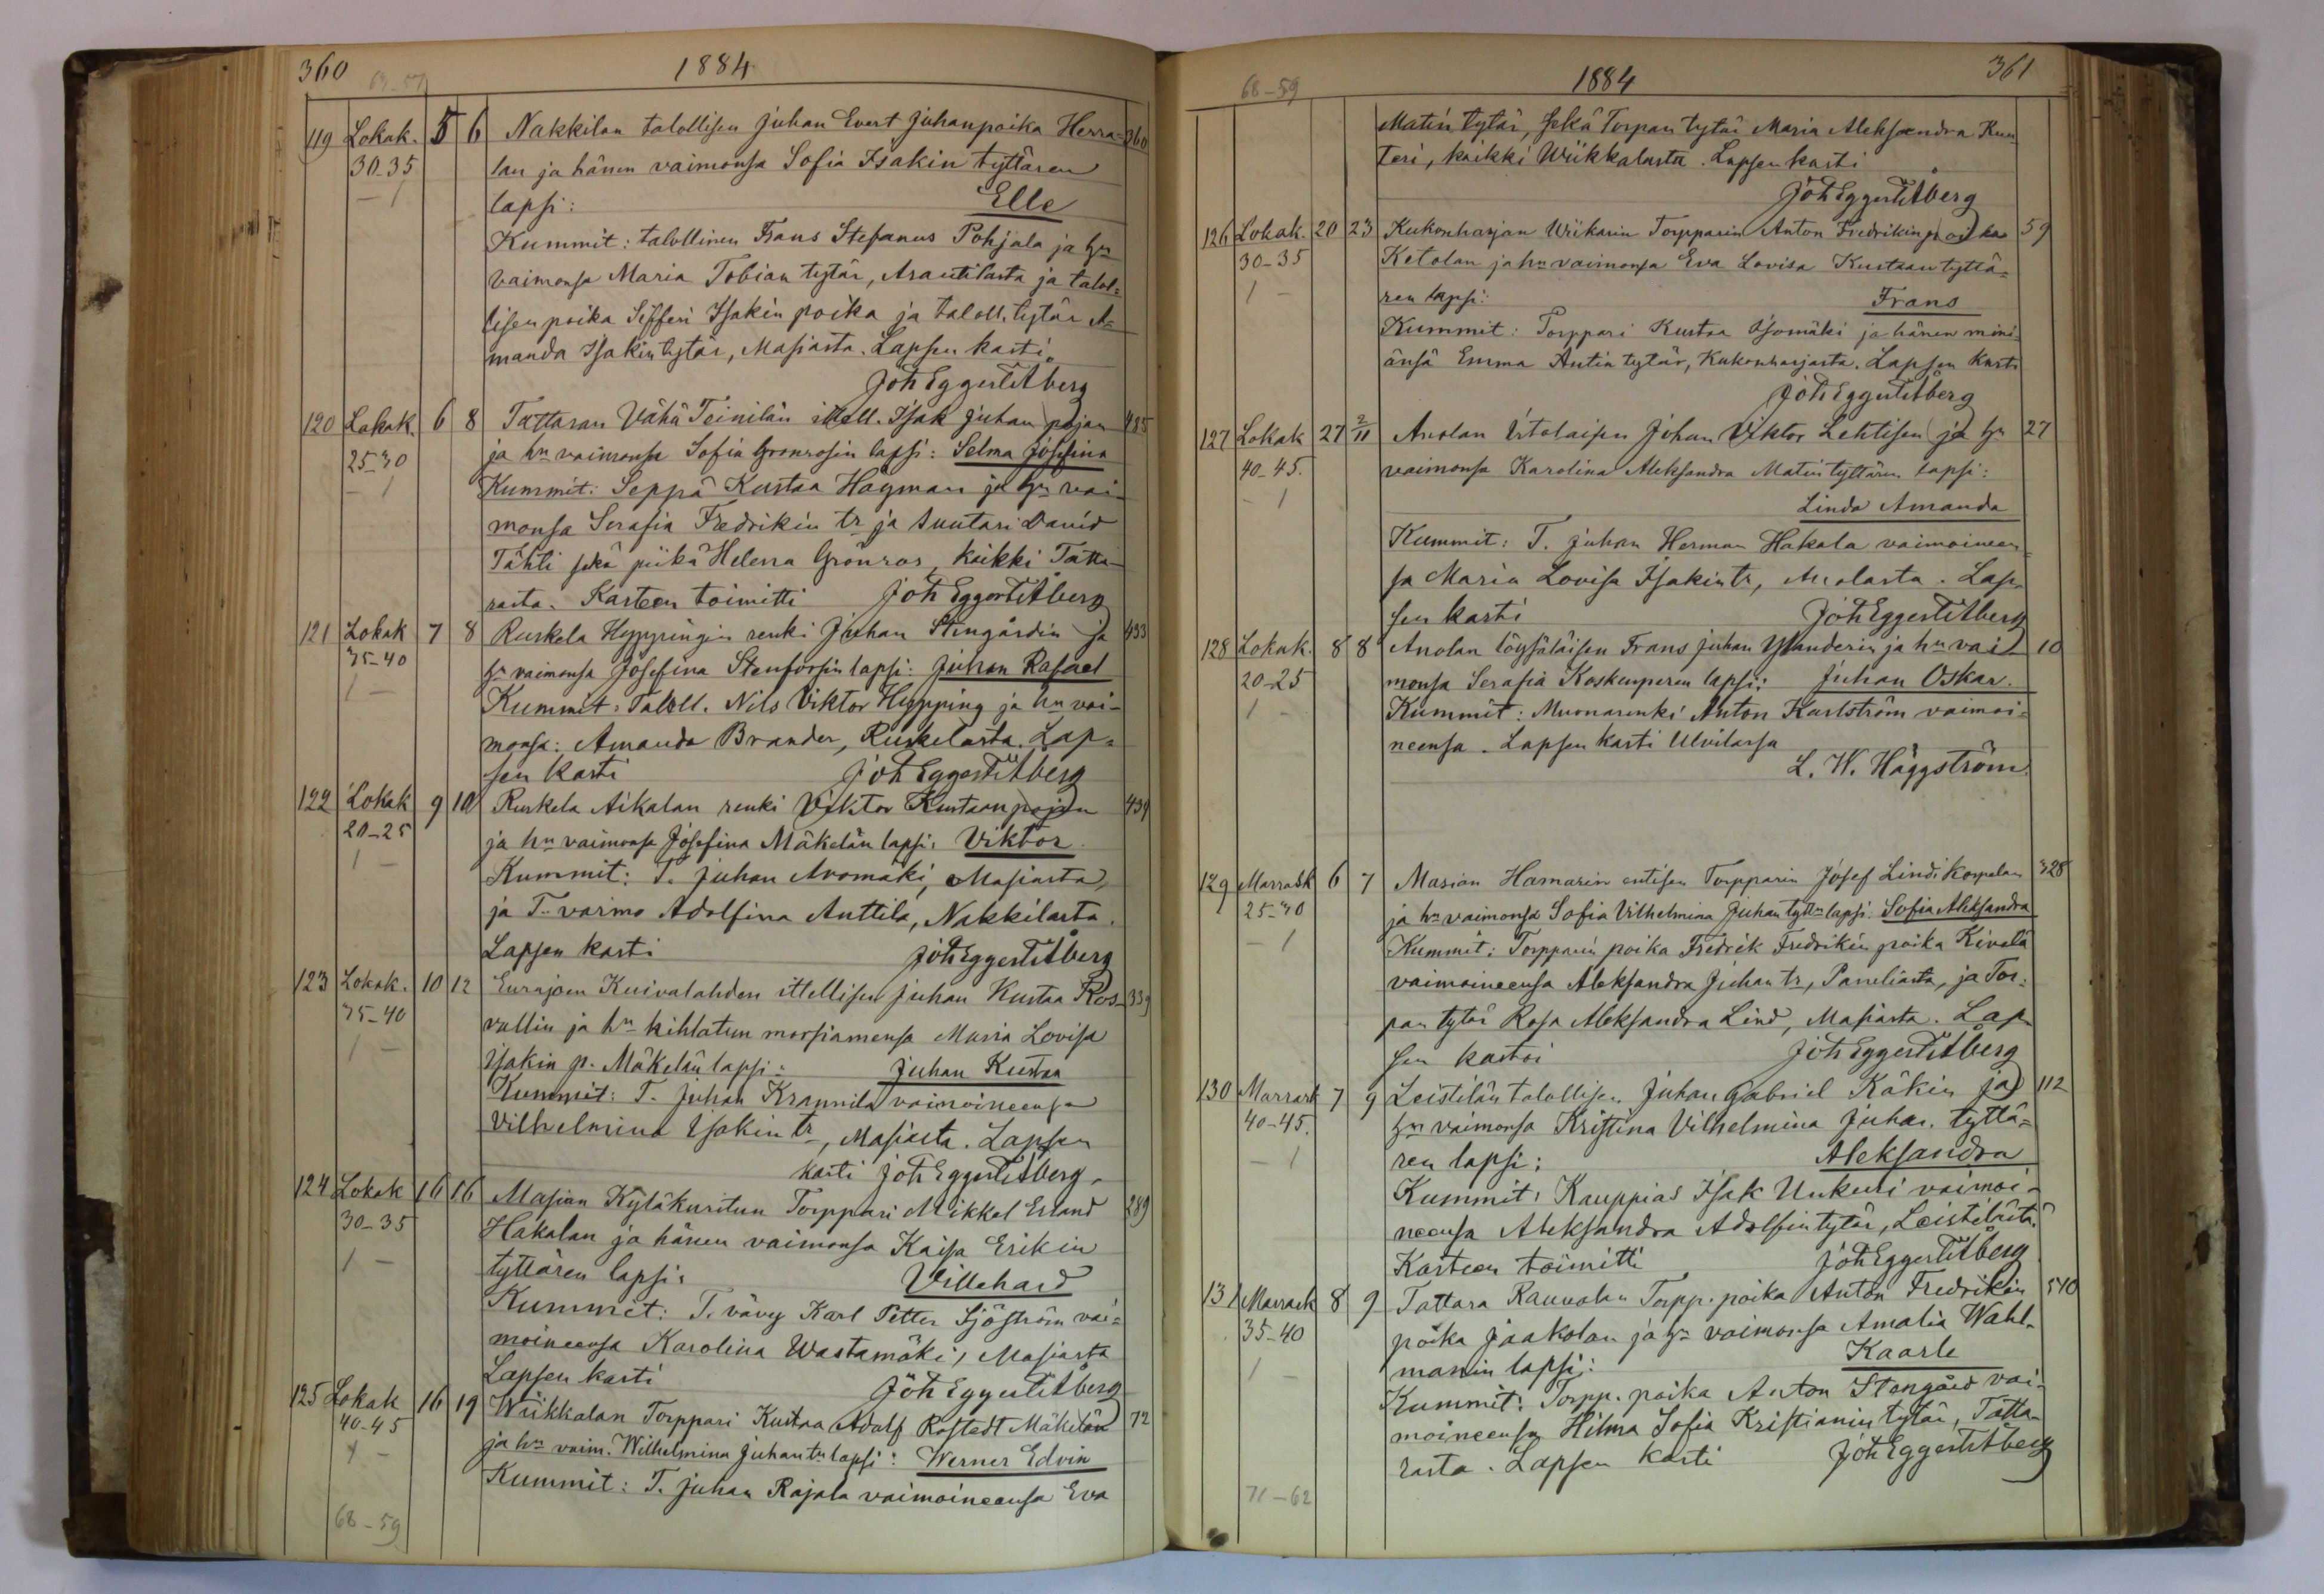 360 63-57 1884
119 Lokak. 5 6 Nakkilan talollisen Juhan Evert Juhanpoika Herra= 360
30-35 lan ja hänen vaimonsa Sofia Isakin tyttären
- 1 lapsi: Elle
Kummit: talollinen Frans Stefanus Pohjala ja hn
vaimonsa Maria Tobian tytär, Arantilasta ja talol=
lisen poika Sefferi Isakin poika ja taloll. tytär A=
manda Isakin tytär, Masiasta. Lapsen kasti
Joh Eggert Åberg
120 Lokak. 6 8 Tattaran Vähä Teinilän itsell. Isak Juhan pojan 485
25-30 ja hn vaimonsa Sofia Grönrosin lapsi: Selma Josefina
- 1 Kummit: Seppä Kustaa Hagman ja hn vai-
monsa Serafia Fredrikin tr ja Suutari David
Tähti sekä piika Helena Grönros, kaikki Tatta-
rasta. Kasteen toimitti Joh Eggert Åberg
121 Lokak 7 8 Ruskela Hyppingin renki Juhan Stengårdin ja 433
35-40 hn vaimonsa Josefina Stenforsin lapsi: Juhan Rafael
1 - Kummit: Taloll. Nils Viktor Hypping ja hn vai-
monsa: Amanda Brander, Ruskelasta. Lap=
sen kasti Joh Eggert Åberg
122 Lokak 9 10 Ruskela Aikalan renki Viktor Kustaan pojan 439
20-25 ja hn vaimonsa Josefina Mäkelän lapsi: Viktor.
1 - Kummit: T. Juhan Avomäki, Masiasta,
ja T. vaimo Adolfina Anttila, Nakkilasta.
Lapsen kasti Joh Eggert Åberg
123 Lokak. 10 12 Eurajoen Kuivalahden ittellisen Juhan Kustaa Ros- 339
35-40 vallin ja hn kihlatun morsiamensa Maria Lovisa
1 - Isakin p. Mäkelän lapsi: Juhan Kustaa
Kummit: T. Juhan Krannila vaimoineensa
Vilhelmina Isakin tr, Masiasta. Lapsen
kasti Joh Eggert Åberg.
124 Lokak 16 16 Masian Kyläkuritun Torppari Mikkel Erland 289
30-35 Hakalan ja hänen vaimonsa Kaisa Erikin
1 - tyttären lapsi: Villehard
Kummit: T. vävy Karl Petter Sjöström vai=
moineensa Karolina Wastamäki, Masiasta
Lapsen kasti Joh Eggert Åberg
125 Lokak 16 19 Wiikkalan Torppari Kustaa Adolf Rostedt Mäkelän 72
40-45 ja hn vaim. Wilhelmina Juhan tr lapsi: Werner Edvin
1 - Kummit: T. Juhan Rajala vaimoineensa Eva
68-59
68-59 1884 361
Matin tytär, sekä Torpan tytär Maria Aleksandra Kun
teri, kaikki Wiikkalasta. Lapsen kasti
Joh Eggert Åberg
126 Lokak. 20 23 Kukonharjan Wiikarin Torpparin Anton Fredrikin poika 59
30-35 Ketolan ja hn vaimonsa Eva Lovisa Kustaan tyttä=
1 - ren lapsi: Frans
Kummit: Torppari Kustaa Isomäki ja hänen mini
änsä Emma Antin tytär, Kukonharjasta. Lapsen Kasti
Joh Eggert Åberg
127 Lokak 27 2/11 Anolan Irtolaisen Juhan Viktor Lehtisen ja hn 27
40-45. vaimonsa Karolina Aleksandra Matin tyttären lapsi:
- 1 Linda Amanda
Kummit: T. Juhan Herman Hakala vaimoineen=
sa Maria Lovisa Isakin tr, Anolasta. Lap-
sen kasti Joh Eggert Åberg
128 Lokak. 8 8 Anolan löysäläisen Frans Juhan Ylanderin ja hn vai 10
20-25 monsa Serafia Koskenperen lapsi: Juhan Oskar.
1 - Kummit: Muonarenki Anton Karlström vaimoi=
neensa. Lapsen kasti Ulvilassa
L. W. Häggström.
129 Marrask 6 7 Masian Hamarin entisen Torpparin Josef Lindi Korpelan 328
25-30 ja hn vaimonsa Sofia Vilhelmina Juhan tytn lapsi: Sofia Aleksandra
- 1 Kummit: Torpparin poika Fredrik Fredrikin poika Kivelä
vaimoineensa Aleksandra Juhan tr, Paneliasta, ja Tor=
pan tytär Rosa Aleksandra Lind, Masiasta. Lap
sen kastoi Joh Eggert Åberg
130 Marrask 7 9 Leistilän talollisen Juhan Gabriel Käkin ja 112
40-45. hn vaimonsa Kristina Vilhelmina Juhan tyttä=
- 1 ren lapsi: Aleksandra
Kummit: Kauppias Isak Unkuri vaimoi-
neensa Aleksandra Adolfin tytär, Leistilästä.
Kasteen toimitti Joh Eggert Åberg
131 Marrask 8 9 Tattara Rauvolan Torpp. poika Anton Fredrikin 540
35-40 poika Jaakolan ja hn vaimonsa Amalia Wahl-
1 - manin lapsi: Kaarle
Kummit: Torpp. poika Anton Stengård vai-
moineensa Hilma Sofia Kristianin tytär, Tatta-
rasta. Lapsen kasti Joh Eggert Åberg
71-62